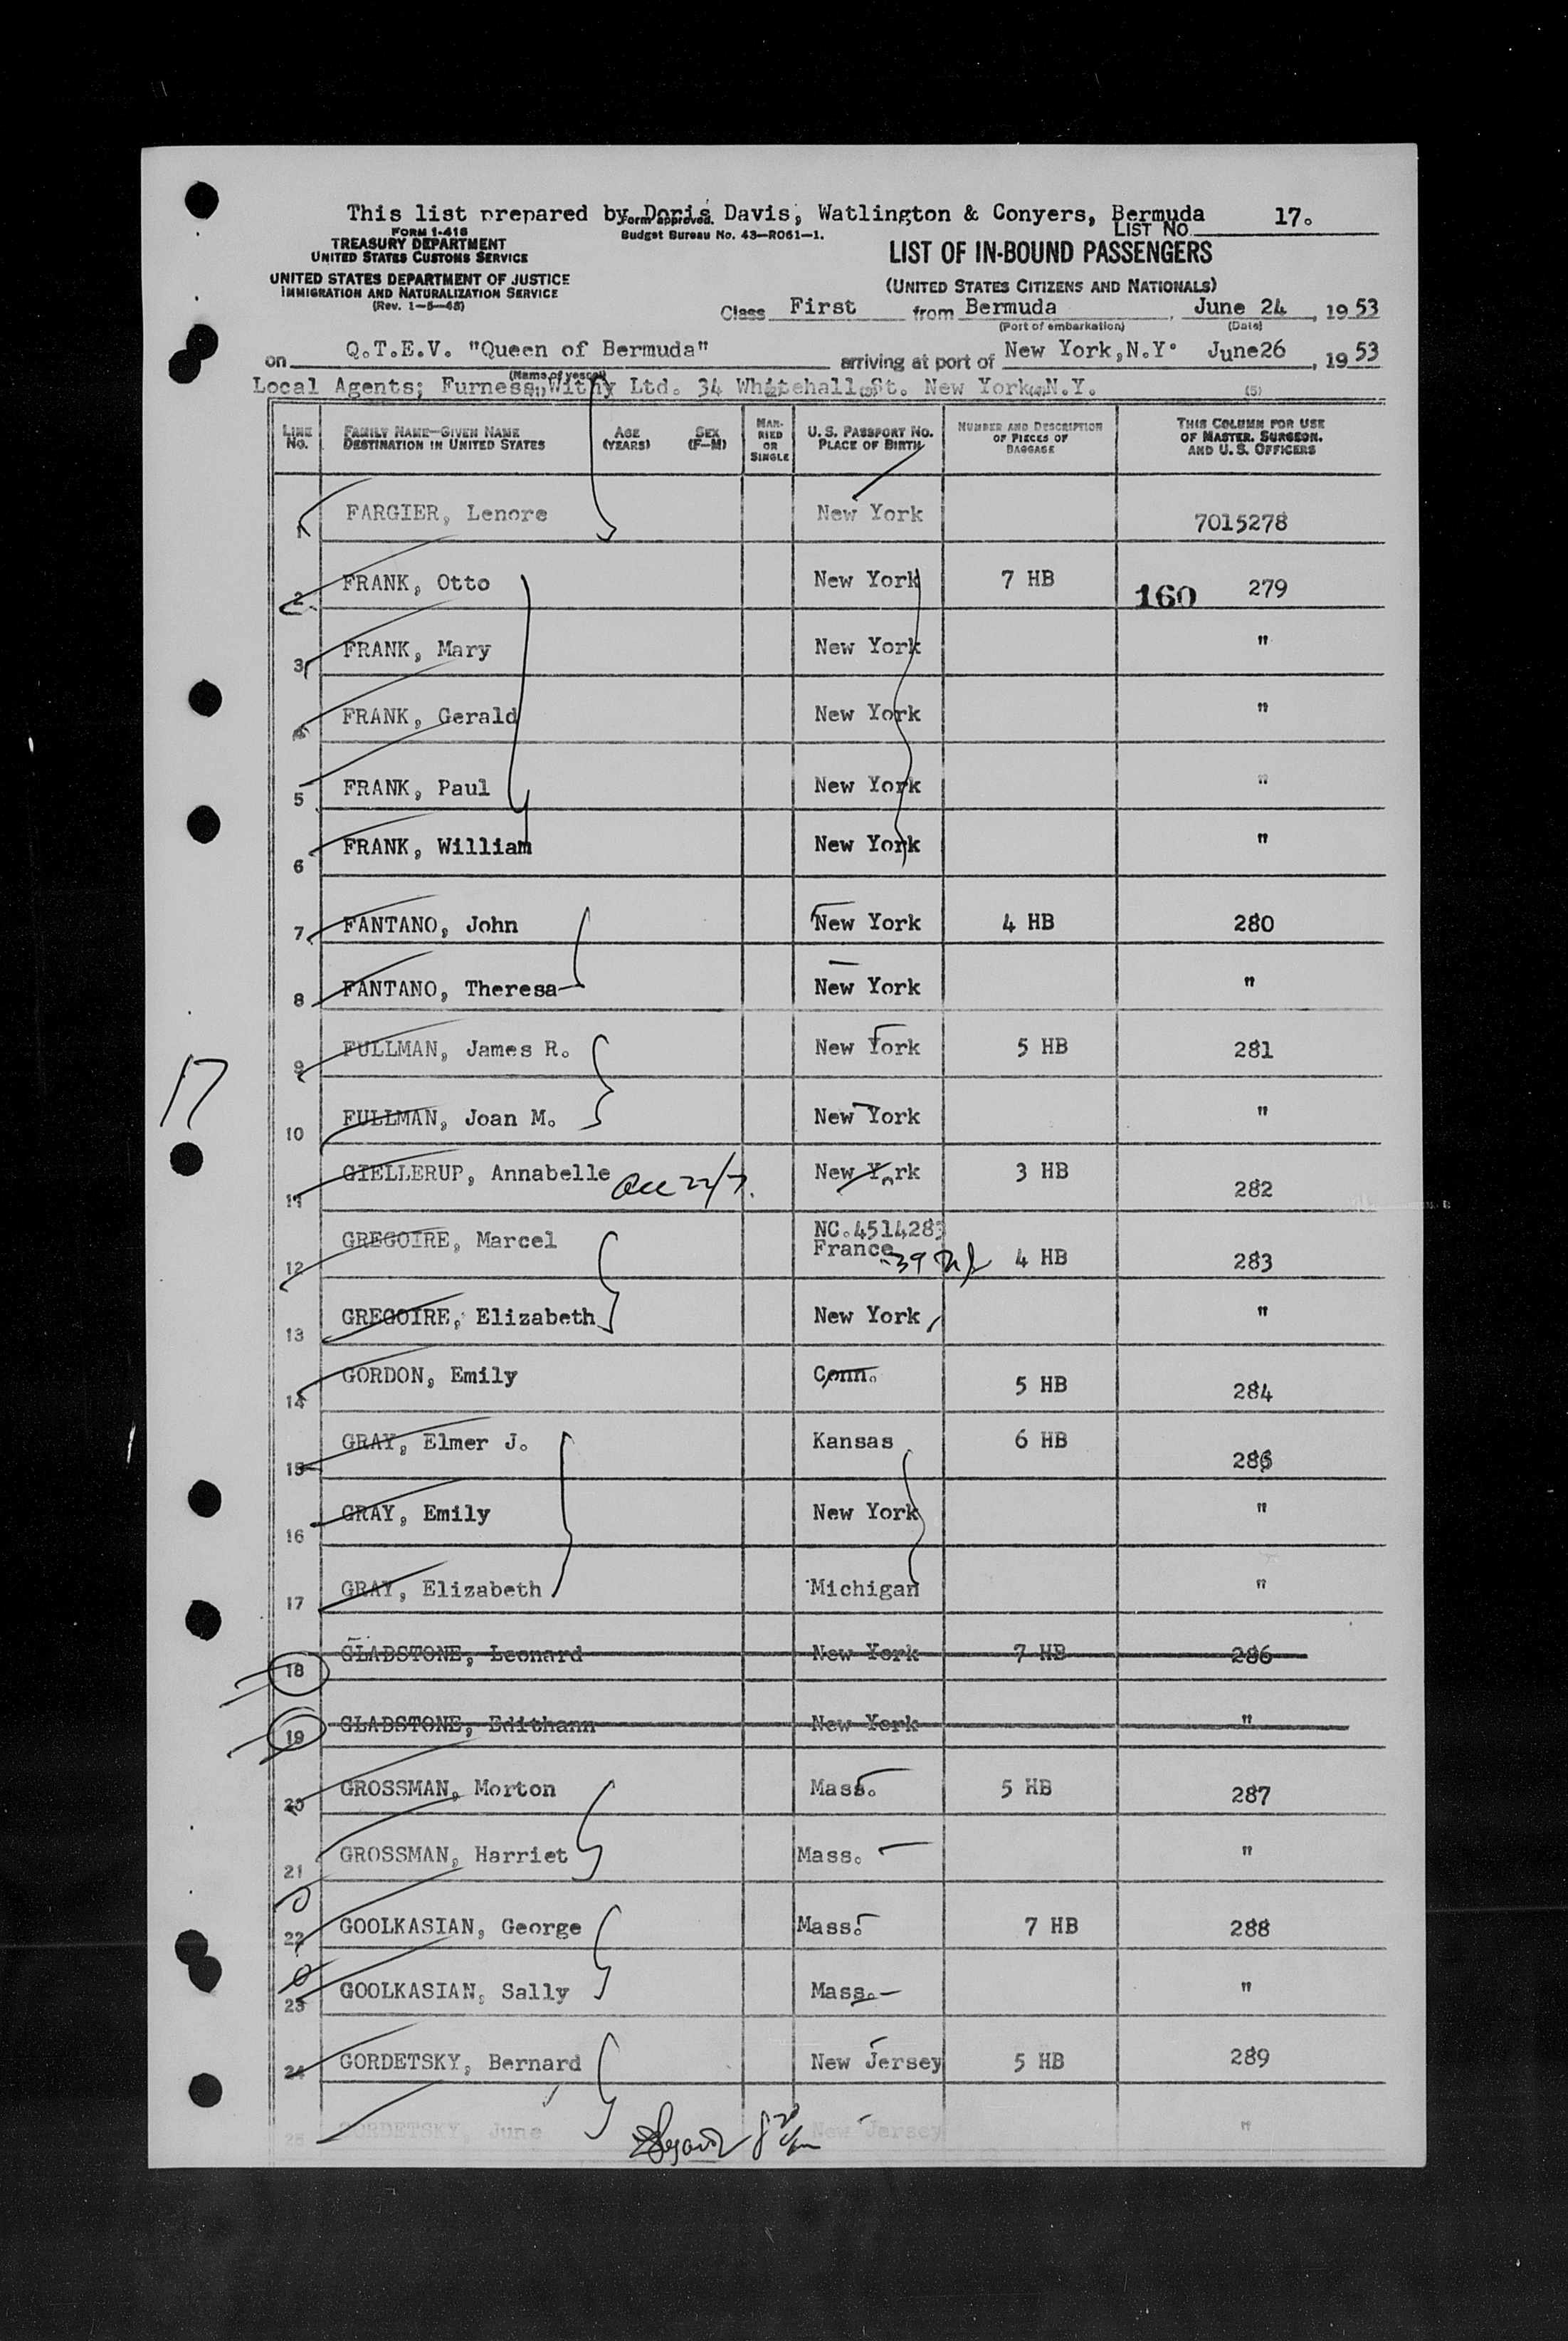 This list prepared by Doris Davis, Watlington & Conyers, Bermuda
LIST No. 17.
FORM I-418
TREASURY DEPARTMENT
UNITED STATES CUSTOMS SERVICE
UNITED STATES DEPARTMENT OF JUSTICE
IMMIGRATION AND NATURALIZATION SERVICE
(Rev. 1-5-48)
Form approved.
Budget Bureau No. 43-R061-1.
LIST OF IN-BOUND PASSENGERS
(UNITED STATES CITIZENS AND NATIONALS)
Class First from Bermuda, June 24, 1953
(Port of embarkation) (Date)
on Q.T.E.V. "Queen of Bermuda" arriving at port of New York, N.Y. June26, 1953
(Name of vessel)
Local Agents; Furness, Withy Ltd. 34 Whitehall St. New York, N.Y. (5)
LINE No. FAMILY NAME—GIVEN NAME DESTINATION IN UNITED STATES AGE (YEARS) SEX (F-M) MARRIED OR SINGLE U. S. PASSPORT No. PLACE OF BIRTH NUMBER AND DESCRIPTION OF PIECES OF BAGGAGE THIS COLUMN FOR USE OF MASTER, SURGEON, AND U. S. OFFICERS
1 FARGIER, Lenore New York 7015278
2 FRANK, Otto New York 7 HB 160 279
3 FRANK, Mary New York "
4 FRANK, Gerald New York "
5 FRANK, Paul New York "
6 FRANK, William New York "
7 FANTANO, John New York 4 HB 280
8 FANTANO, Theresa New York "
9 FULLMAN, James R. New York 5 HB 281
17
10 FULLMAN, Joan M. New York "
11 GIELLERUP, Annabelle New York 3 HB 282
12 GREGOIRE, Marcel NC.4514283 France 4 HB 283
13 GREGOIRE, Elizabeth New York "
14 GORDON, Emily Conn. 5 HB 284
15 GRAY, Elmer J. Kansas 6 HB
16 GRAY, Emily New York "
17 GRAY, Elizabeth Michigan "
18 GLADSTONE, Leonard New York 7 HB 286
19 GLADSTONE, Edithann New York "
20 GROSSMAN, Morton Mass. 5 HB 287
21 GROSSMAN, Harriet Mass. "
22 GOOLKASIAN, George Mass. 7 HB 288
23 GOOLKASIAN, Sally Mass. "
24 GORDETSKY, Bernard New Jersey 5 HB 289
25 GORDETSKY, June New Jersey "